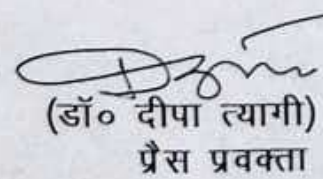 (डॉ० दीपा त्यागी)
प्रैस प्रवक्ता